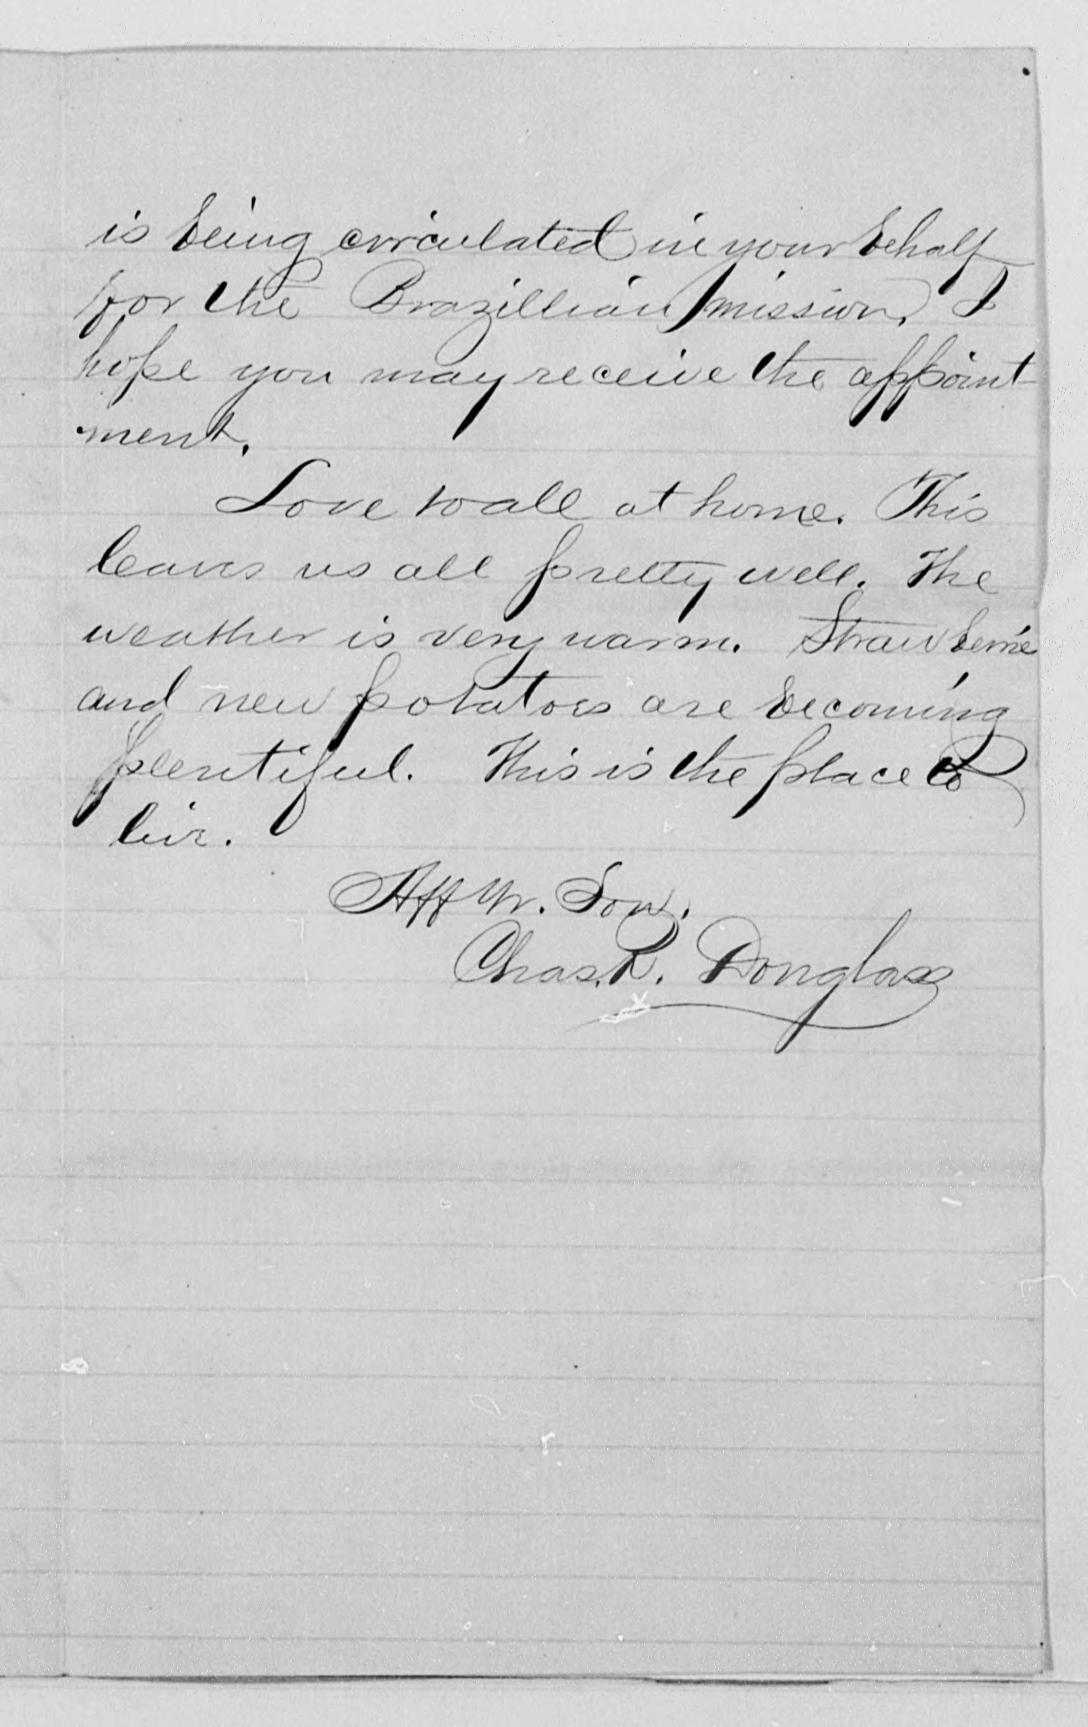 is being circulated in your behalf
for the Brazillian mission. I
hope you may receive the appoint-
ment.
Love to all at home. This
leaves us all pretty well. The
weather is very warm. Strawberrie
and new potatoes are becoming
plentiful. This is the place to
live.
Aff Yr. Son.
Chas. R. Douglass